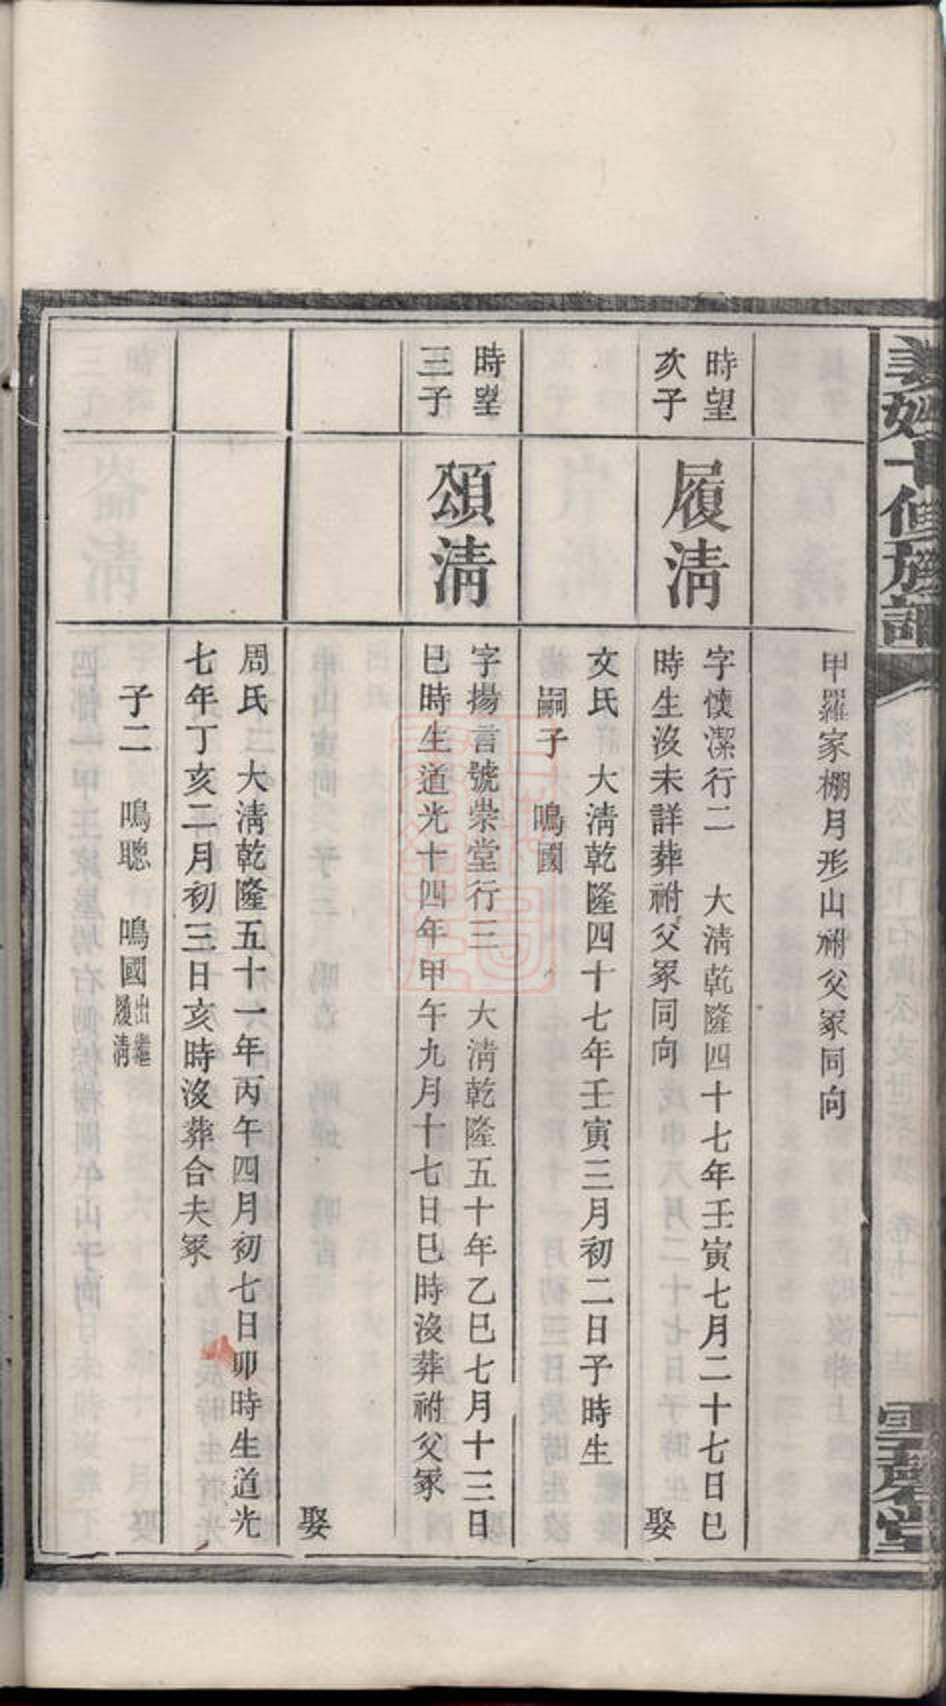 甲羅家棚月形山祔父冢同向
時望
次子
履淸
字懷潔行二　大淸乾隆四十七年壬寅七月二十七日巳
時生沒未詳葬祔父冢同向　娶
文氏　大淸乾隆四十七年壬寅三月初二日子時生
嗣子　鳴國
時望
三子
頌淸
字揚言號崇堂行三　大淸乾隆五十年乙巳七月十三日
巳時生道光十四年甲午九月十七日巳時沒葬祔父冢
娶
周氏　大淸乾隆五十一年丙午四月初七日卯時生道光
七年丁亥二月初三日亥時沒葬合夫冢
子二　鳴聰　鳴國出繼履淸